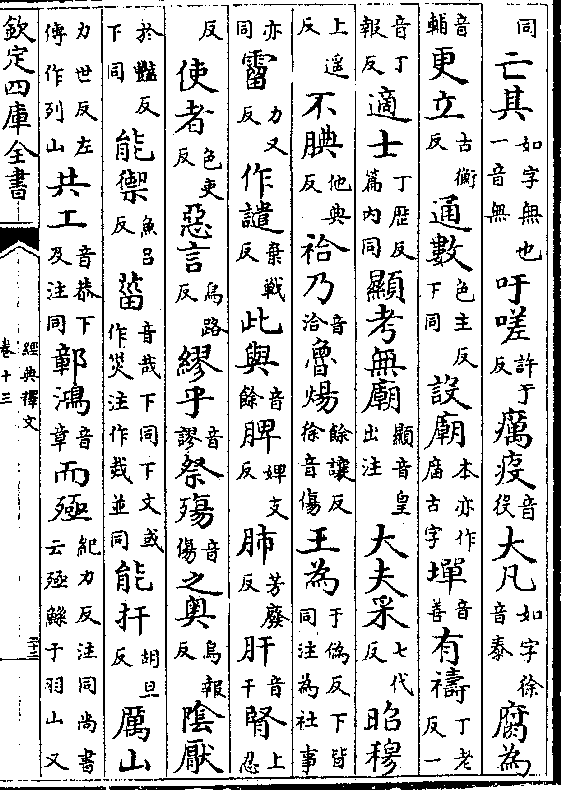 同亡其如字無也一音無吁嗟許于反癘疫音役大凡如字徐音泰腐為
音輔更立古衡反通數色主反下同設廟本亦作庿古字墠音善有禱丁老反一
音丁報反適士丁歷反篇内同顯考無廟顯音皇出注大夫采七代反昭穆
上遥反不腆他典反祫乃音洽魯煬餘讓反徐音傷王為于偽反下皆同注為社事
亦同霤力又反作譴棄戰反此與音餘脾婢支反肺芳廢反肝音干腎上忍
反使者色吏反惡言烏路反繆乎音謬祭殤音傷之奥烏報反陰厭
於豔反下同能禦魚吕反菑音哉下同下文或作災注作烖並同能扞胡旦反厲山
力世反左傳作列山共工音恭下及注同鄣鴻音章而殛紀力反注同尚書云殛鯀于羽山又
欽定四庫全書
經典釋文
卷十三